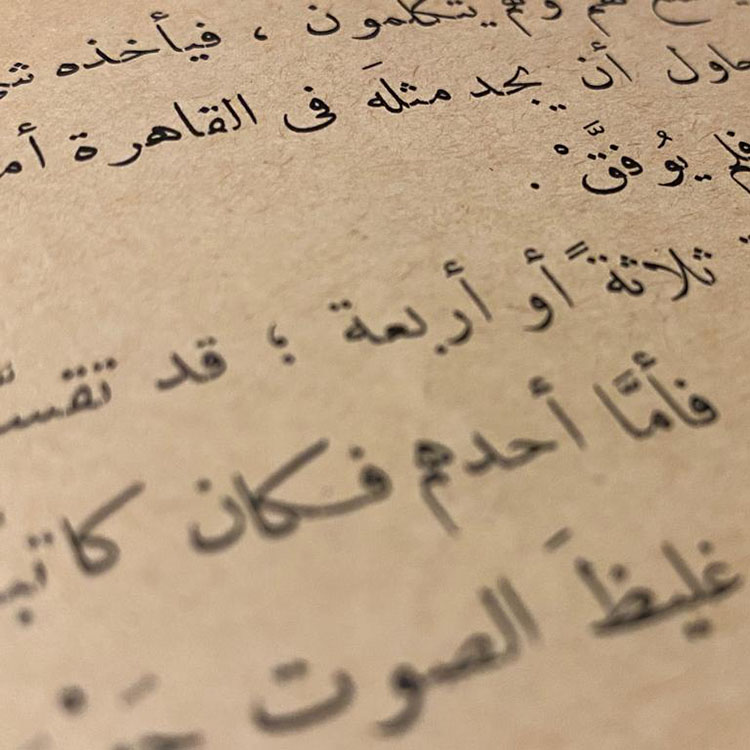 وهم يتكلمون ، فيأخذه
أنْ يجد مثلهَ فى القاهرة
فلم يُوُفقَّْ .
ثلاثةً أو أربعة ؛ قد
فأمَّا أحدهم فكان
غليظَ الصوت